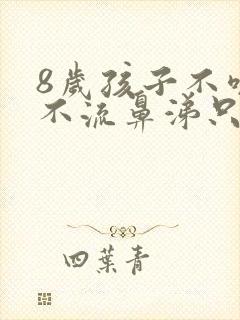 8歲孩子不
不流鼻涕只
四葉青